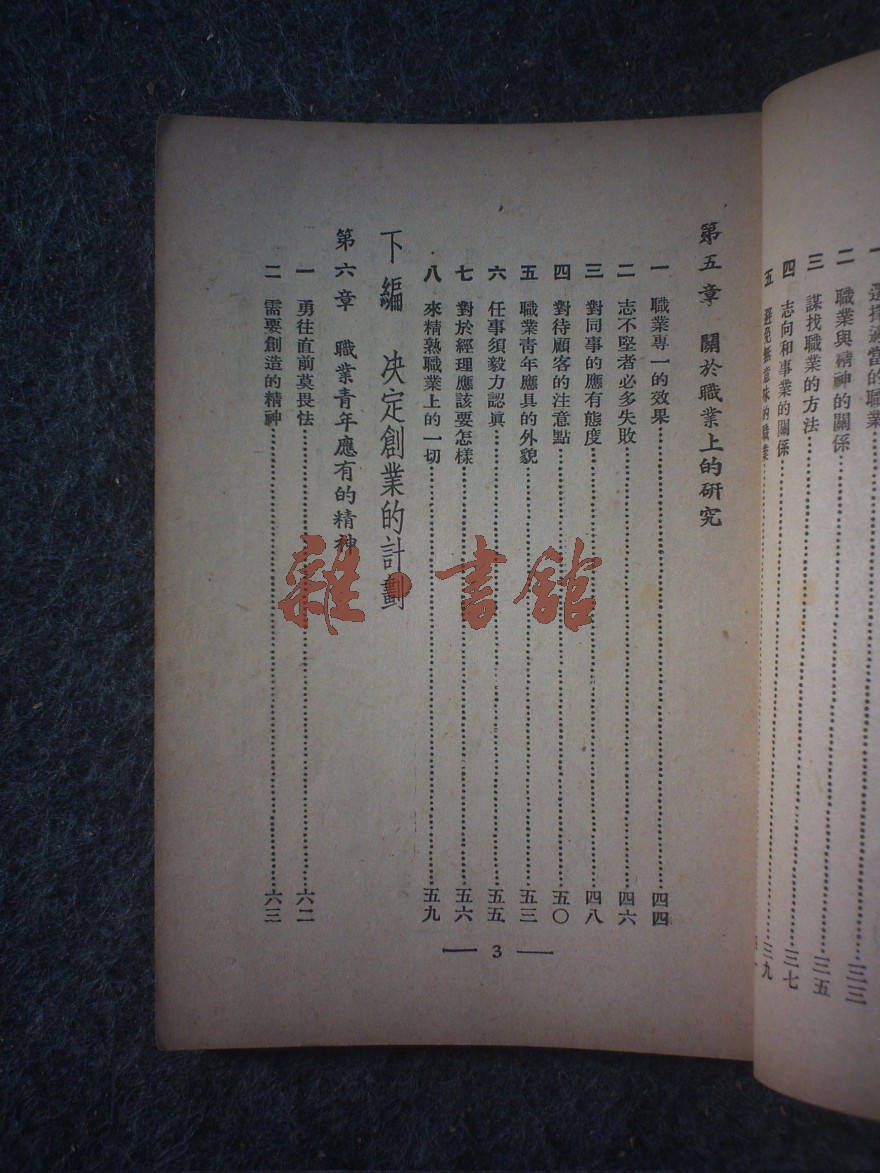 一　選擇適當的職業
二　職業與精神的關係……三三
三　謀找職業的方法……三五
四　志向和事業的關係……三七
五　避免無意味的職業……三九
第五章　關於職業上的研究
一　職業專一的效果……四四
二　志不堅者必多失敗……四六
三　對同事的應有態度……四八
四　對待顧客的注意點……五〇
五　職業青年應具的外貌……五三
六　任事須毅力認眞……五五
七　對於經理應該要怎樣……五六
八　來精熟職業上的一切……五九
下編　決定創業的計劃
第六章　職業青年應有的精神
一　勇往直前莫畏怯……六二
二　需要創造的精神……六三
— 3 —
雜·書館